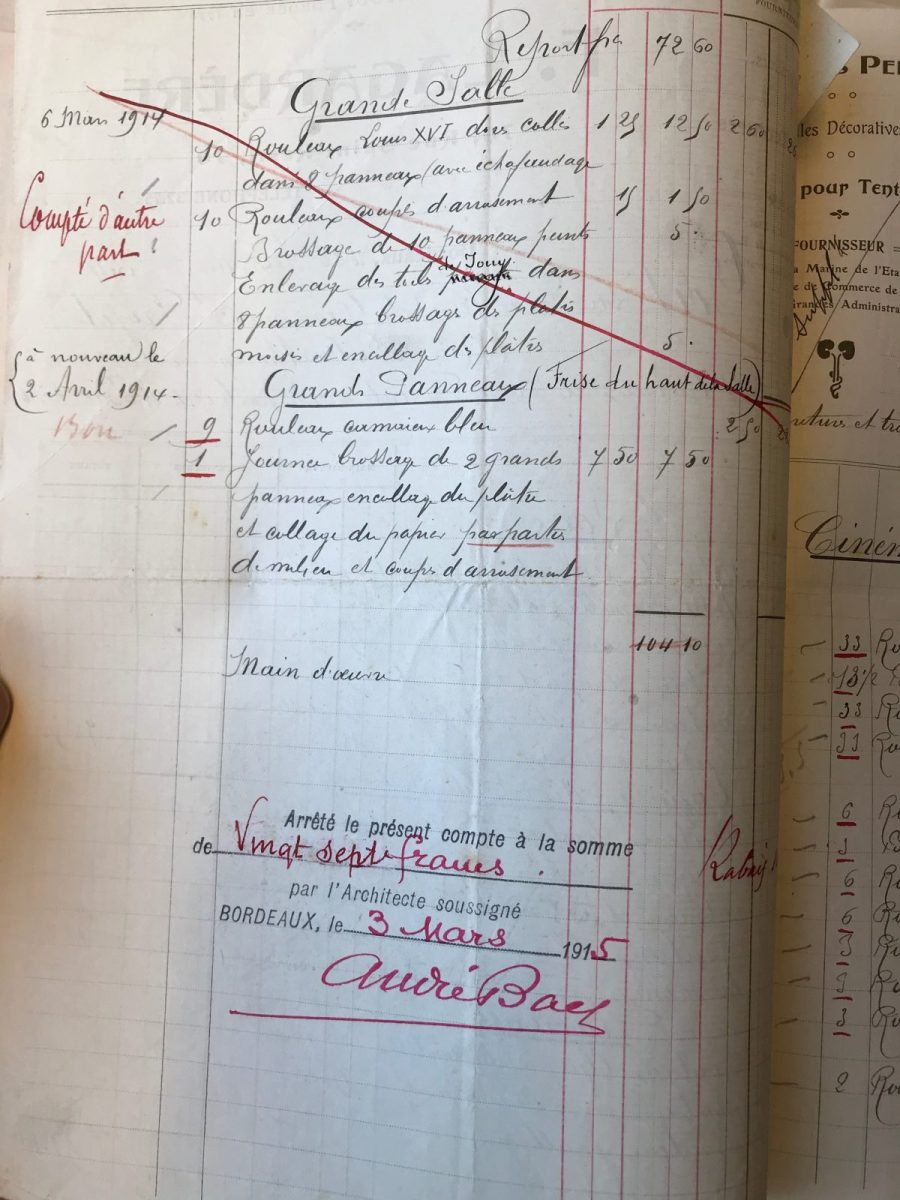 FOURNITURES
Report fcs 72 60
Grande Salle
6 Mars 1914
10 Rouleaux Louis XVI collés 1 25 12 50 2 60
dans 8 panneaux (avec échafaudage
Compté d'autre part ?
10 Rouleaux coupes d'arrasement 15 1 50
Brossage de 10 panneaux peints 5 .
Enlevage des toiles de Jouy dans
8 panneaux brossage des plâtres
mises et encollage des plâtres 5 .
{ à nouveau le
2 Avril 1914 -
Grands Panneaux (Frise du haut de la Salle)
Bon 9 Rouleaux camaieux bleu 2 50
1 Journée brossage de 2 grands 7 50 7 50
panneaux encollage du plâtre
et collage du papier par parties
de milieu et coupes d'arrasement
104 10
Main d'œuvre
Arrêté le présent compte à la somme
de Vingt sept francs .
par l'Architecte soussigné
BORDEAUX, le 3 Mars 1915
André Bac
Rabais
PE
les Décorative
pour Tent
FOURNISSEUR
a Marine de l'Eta
e de Commerce de
Grandes Administra
Ciném
33
18 1/2
33
33
6
3
6
6
3
9
3
2